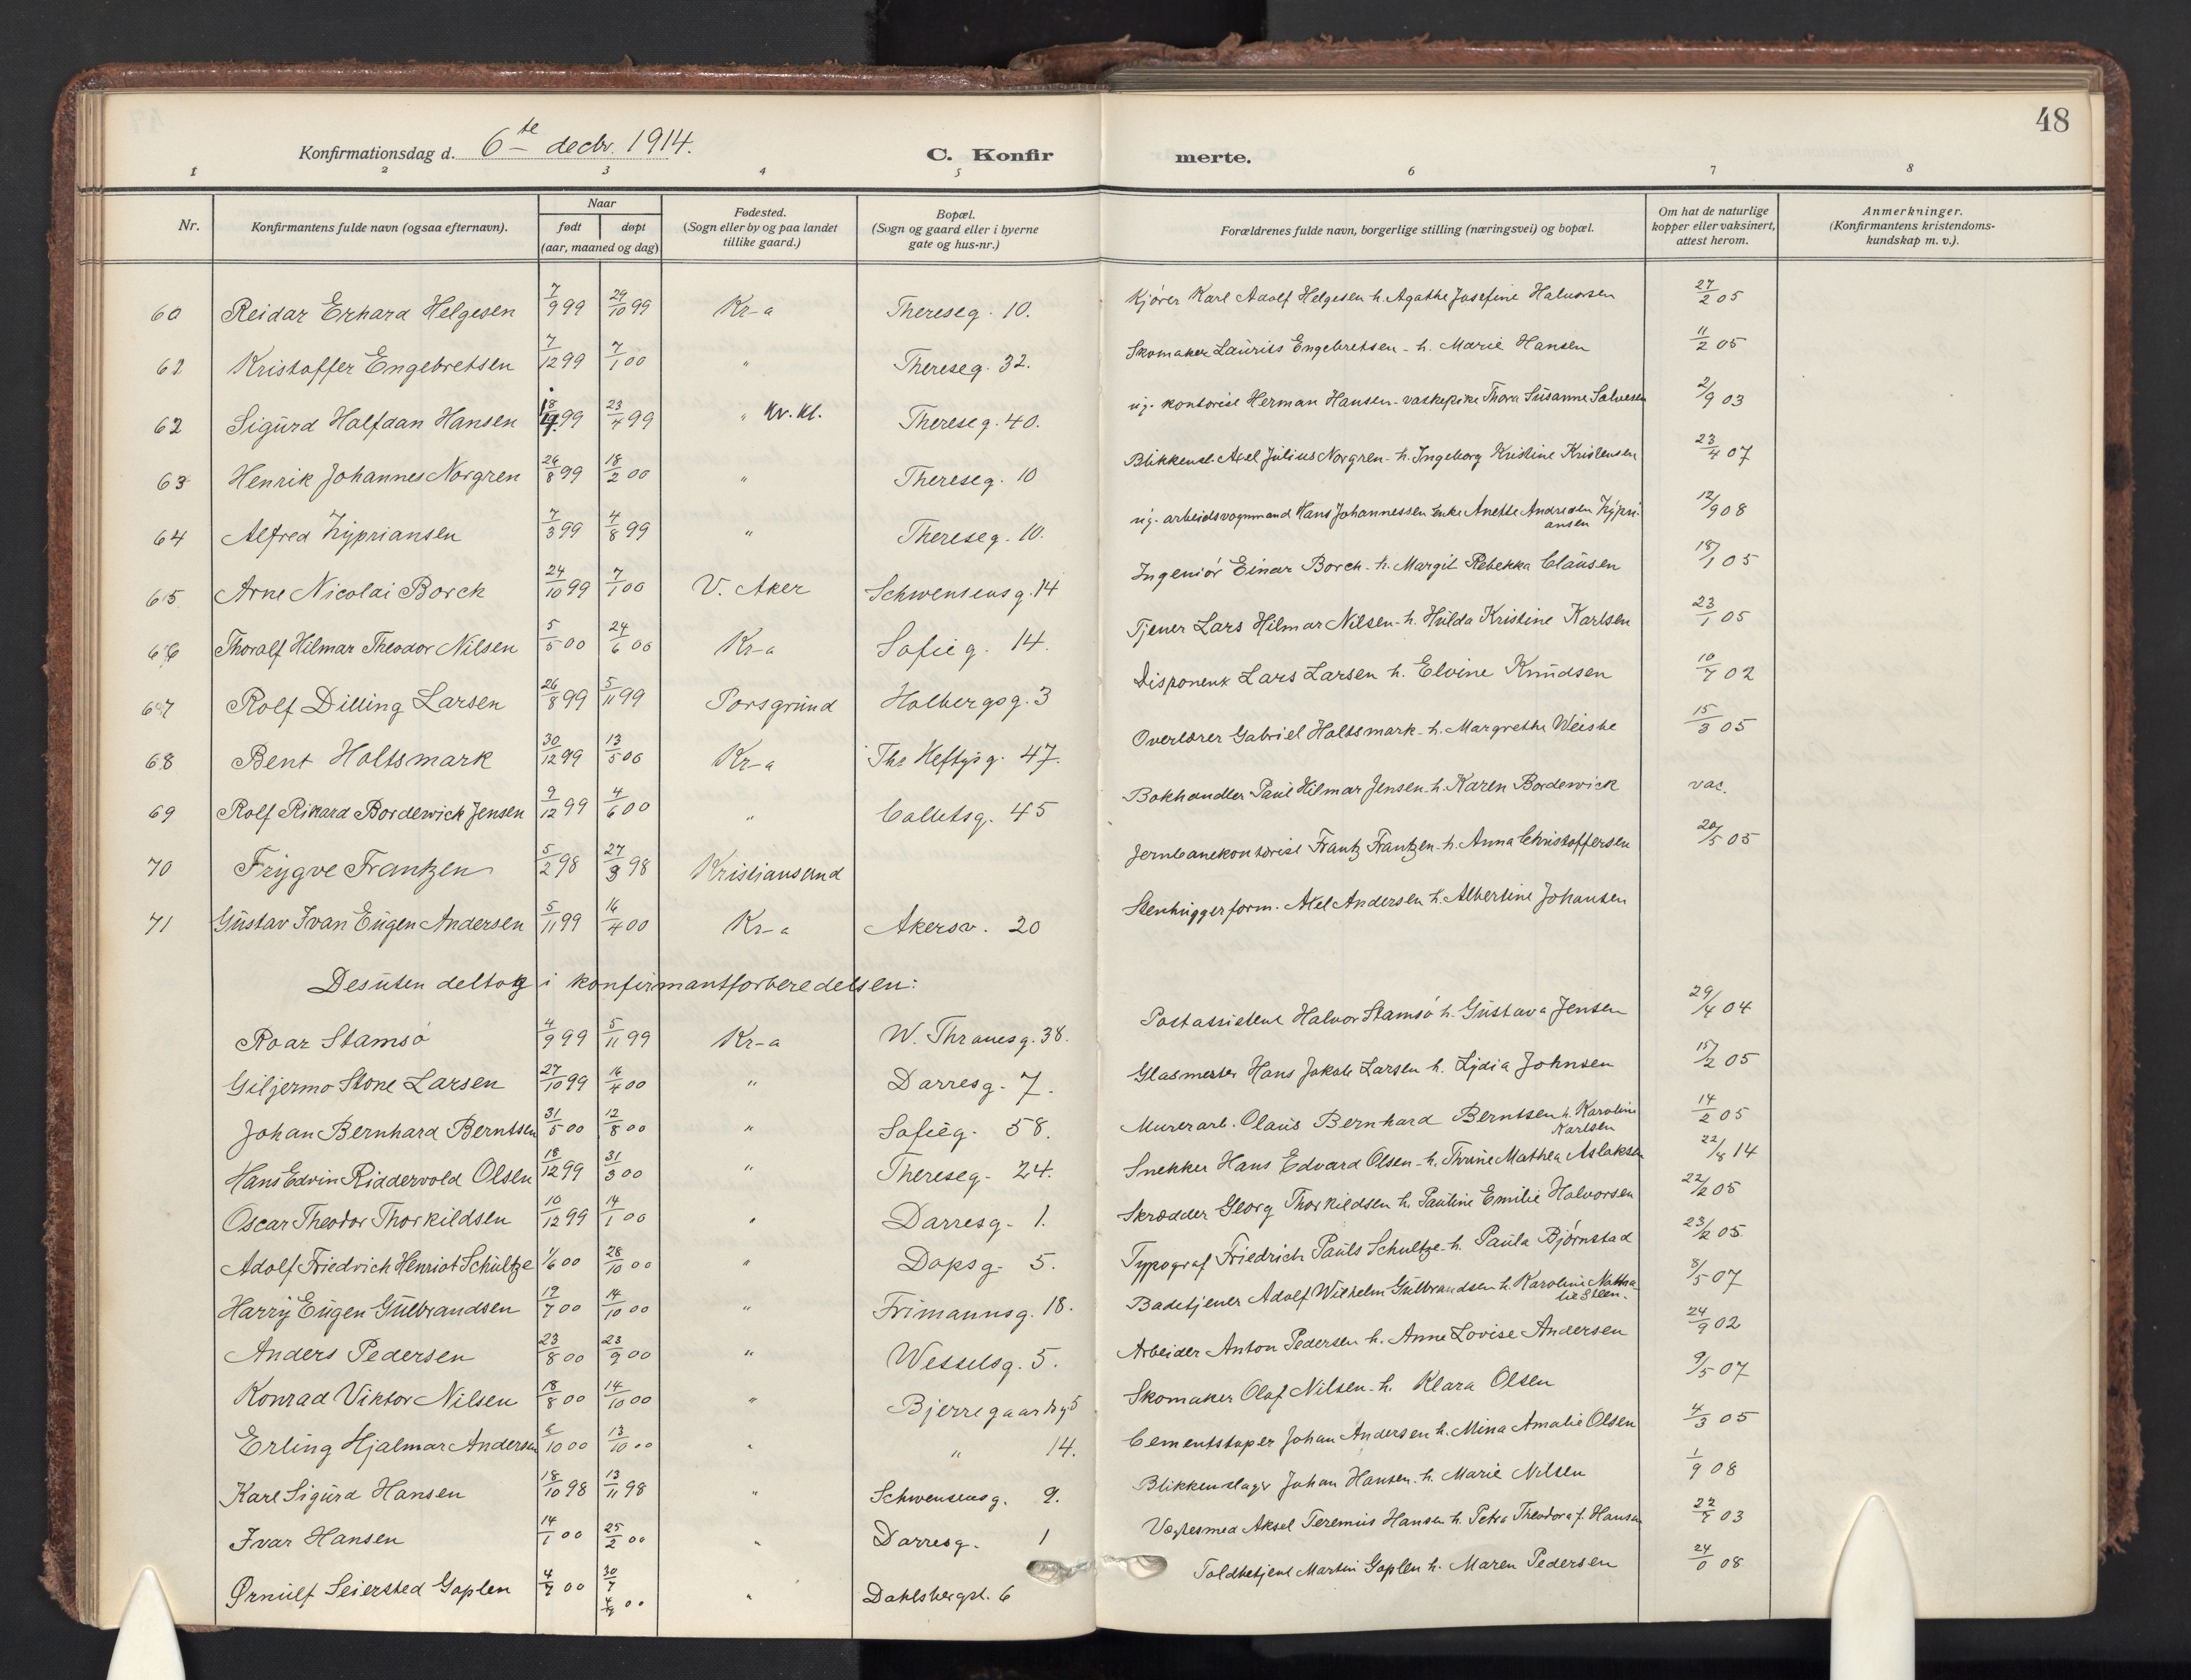 48
Konfirmationsdag d. 6te decbr. 1914.
C. Konfirmerte.
1 2 3 4 5 6 7 8
Nr.
Konfirmantens fulde navn (ogsaa efternavn).
Naar
født døpt
(aar, maaned og dag)
Fødested.
(Sogn eller by og paa landet
tillike gaard.)
Bopæl.
(Sogn og gaard eller i byerne
gate og hus-nr.)
Forældrenes fulde navn, borgerlige stilling (næringsvei) og bopæl.
Om hat de naturlige
kopper eller vaksinert,
attest herom.
Anmerkninger.
(Konfirmantens kristendoms-
kundskap m. v.).
60 Reidar Erhard Helgesen 7/9 99 29/10 99 Kr-a Thereseg. 10. Kjører Karl Adolf Helgesen h. Agathe Josefine Halvorsen 27/2 05
62 Kristoffer Engebretsen 7/12 99 7/1 00 " Thereseg. 32. Skomaker Laurits Engebretsen - h. Marie Hansen 11/2 05
62 Sigurd Halfdan Hansen 18/ 99 23/4 99 " Kv. Kl. Thereseg. 40. ug. kontorist Herman Hansen - vaskepike Thora Susanne Salvesen 2/9 03
63 Henrik Johannes Norgren 26/8 99 18/2 00 " Thereseg. 10 Blikkensl. Axel Julius Norgren - h. Ingeborg Kristine Kristensen 23/4 07
64 Alfred Zypriansen 7/3 99 4/8 99 " Thereseg. 10. ug. arbeidsvognmand Hans Johannessen Enke Anette Andresen Zypri-
ansen 12/9 08
65 Arne Nicolai Borch 24/10 99 7/1 00 V. Aker Schwensensg. 14 Ingeniør Einar Borch - h. Margit Rebekka Clausen 18/1 05
66 Thoralf Hilmar Theodor Nilsen 5/5 00 24/6 00 Kr-a Sofieg. 14. Tjener Lars Hilmar Nilsen - h. Hulda Kristine Karlsen 23/1 05
67 Rolf Dilling Larsen 26/8 99 5/11 99 Porsgrund Holbergsg. 3 Disponent Lars Larsen h. Elvine Knudsen 10/7 02
68 Bent Holtsmark 30/12 99 13/5 00 Kr-a Ths Heftysg. 47. Overlærer Gabriel Holtsmark - h. Margrethe Weisbe 15/3 05
69 Rolf Rikard Bordewick Jensen 9/12 99 4/6 00 " Colletsg. 45 Bokhandler Paul Hilmar Jensen - h. Karen Bordewick vac.
70 Trygve Frantzen 5/2 98 27/3 98 Kristiansund Jernbanekontorist Frantz Frantzen - h. Anna Christoffersen 20/5 05
71 Gustav Ivan Eugen Andersen 5/11 99 16/4 00 Kr-a Akersv. 20 Stenhuggerform. Axel Andersen h. Albertine Johansen
Desuten deltog i konfirmantforberedelsen:
Roar Stamsø 4/9 99 5/11 99 Kr-a W. Thranesg. 38. Postassistent Halvor Stamsø h. Gustava Jensen 29/4 04
Giljermo Stone Larsen 27/10 99 16/4 00 " Darresg. 7. Glasmester Hans Jakob Larsen h. Lydia Johnsen 15/2 05
Johan Bernhard Berntsen 31/5 00 12/8 00 " Sofieg. 58. Murerarb. Olaus Bernhard Berntsen h. Karoline
Karlsen 14/2 05
Hans Edvin Riddervold Olsen 18/12 99 31/3 00 " Thereseg. 24. Snekker Hans Edvard Olsen - h. Thrine Mathea Aslaksen 22/8 14
Oscar Theodor Thorkildsen 10/12 99 14/1 00 " Darresg. 1. Skrædder Georg Thorkildsen h. Pauline Emilie Halvorsen 22/2 05
Adolf Friedrich Henriot Schultze 1/6 00 28/10 00 " Dopsg. 5. Typograf Friedrich Pauls Schultze - h. Paula Bjørnstad 23/2 05
Harry Eugen Gulbrandsen 19/7 00 14/10 00 " Frimannsg. 18. Badetjener Adolf Wilhelm Gulbrandsen h. Karoline Natha-
lie Steen. 8/5 07
Anders Pedersen 23/8 00 23/9 00 " Wesselsg. 5. Arbeider Anton Pedersen h. Anne Lovise Andersen 24/9 02
Konrad Viktor Nilsen 18/8 00 14/10 00 " Bjerregaardsg 5 Skomaker Olaf Nilsen - h. Klara Olsen 9/5 07
Erling Hjalmar Andersen 6/10 00 13/10 00 " " 14. Cementstøper Johan Andersen h. Mina Amalie Olsen 4/3 05
Karl Sigurd Hansen 18/10 98 13/11 98 " Schwensensg. 9. Blikkenslager Johan Hansen. h. Marie Nilsen 1/9 08
Ivar Hansen 14/1 00 25/2 00 " Darresg. 1 Vegtesmed Aksel Teremius Hansen h. Petra Theodora f. Hansen 22/7 03
Ørnulf Seiersted Goplen 4/7 00 30/7 00 " Dahlsbergst. 6 Toldbetjent Martin Goplen h. Maren Pedersen 24/ 08